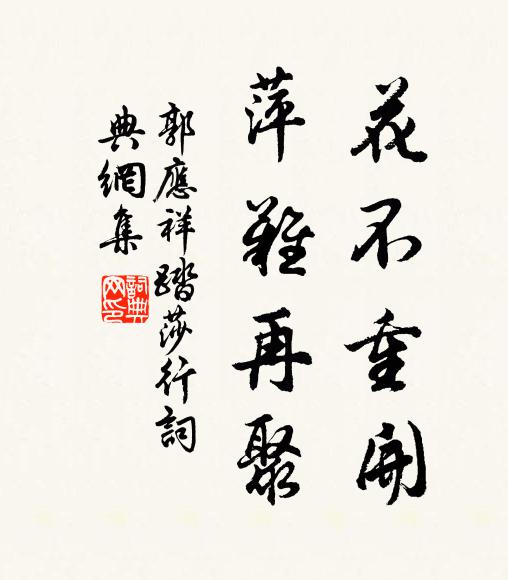 花不重開
萍難再聚
郭應祥踏莎行詞
典網集
詞典
网印